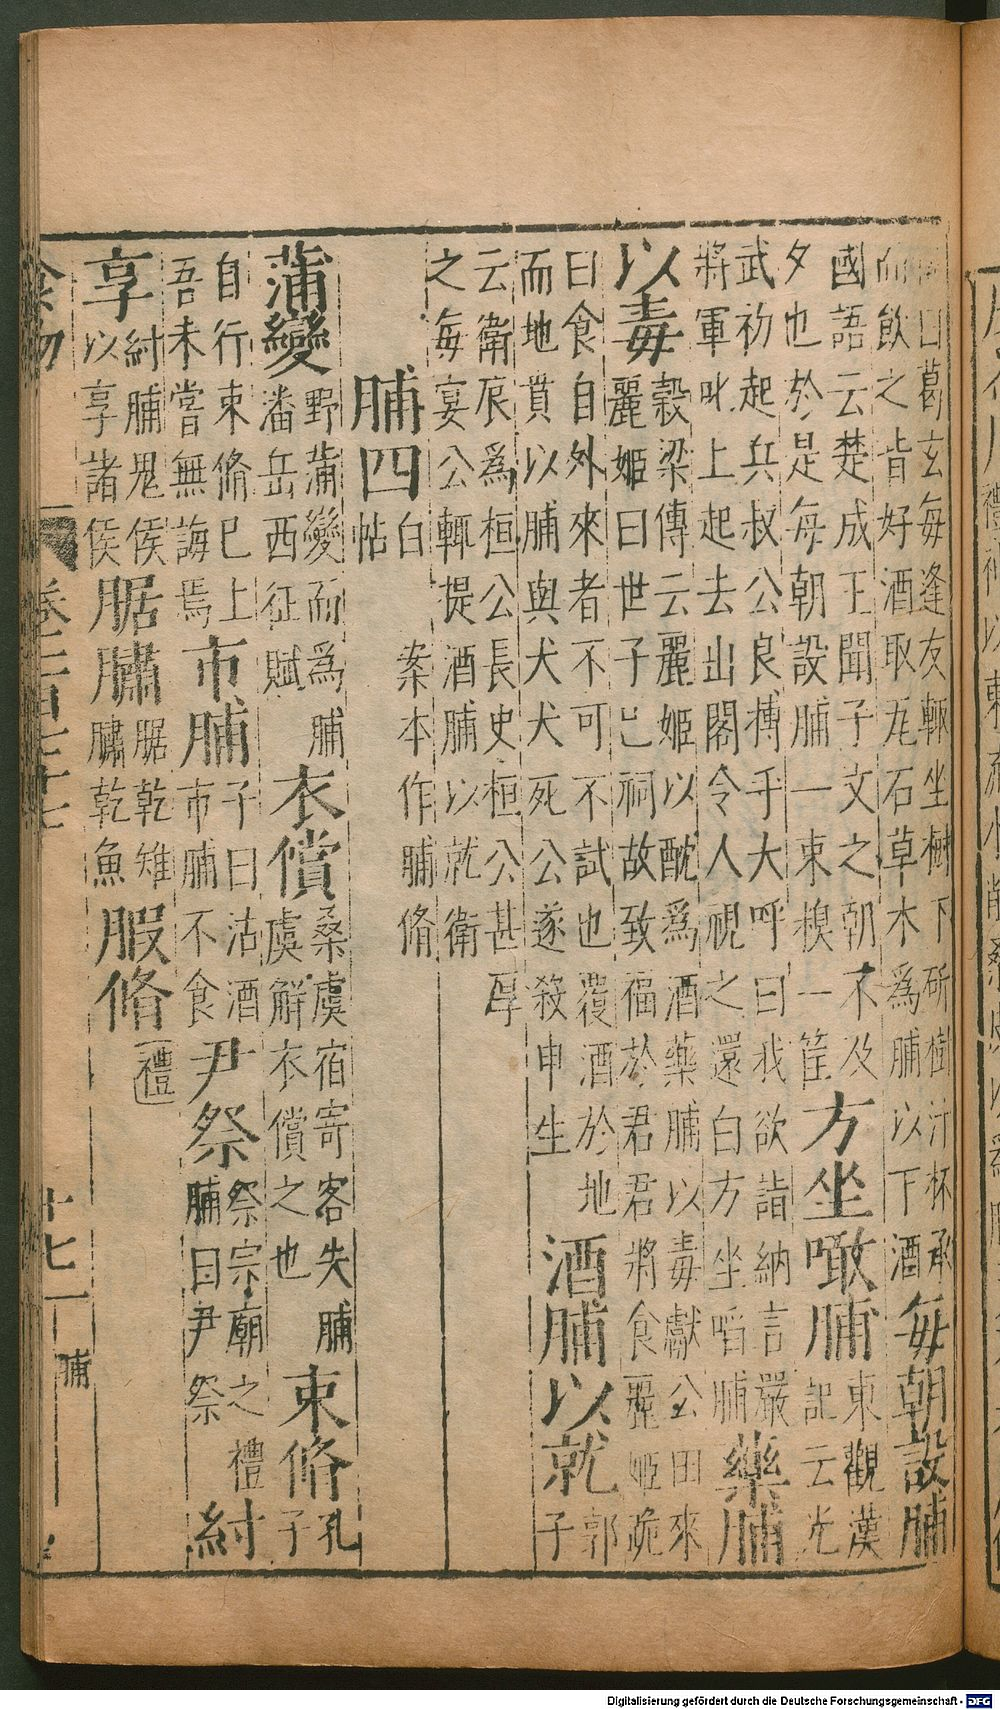 曰葛玄每逢友輒坐樹下斫樹汁杯承
而飲之皆好酒取瓦石草木為脯以下酒
每朝設脯
國語云楚成王聞子文之朝不及
夕也於是每朝設脯一束糗一筐
方坐噉脯
東觀漢
記云光
武初起兵叔公良搏乎大呼曰我欲詣納言嚴
將軍叱上起去出閤令人視之還白方坐啗脯
藥脯
以毒
穀梁傳云麗姬以酖為酒藥脯以毒獻公田來
麗姬曰世子已祠故致福於君君將食麗姬跪
曰食自外來者不可不試也覆酒於地
而地賁以脯與犬犬死公遂殺申生
酒脯以就
郭
子
云衛辰為桓公長史桓公甚厚
之每宴公輒提酒脯以就衛
脯四
白
帖
案本作脯脩
蒲變
野蒲變而為脯
潘岳西征賦
衣償
桑虞宿寄客失脯
虞解衣償之也
束脩
孔
子
自行束脩已上
吾未嘗無誨焉
市脯
子曰沽酒
市脯不食
尹祭
祭宗廟之禮
脯曰尹祭
紂
享
紂脯鬼侯
以享諸侯
腒膅
腒乾雉
乾魚
腵脩
禮
十七
脯
Digitalisierung gefördert durch die Deutsche Forschungsgemeinschaft - DFG